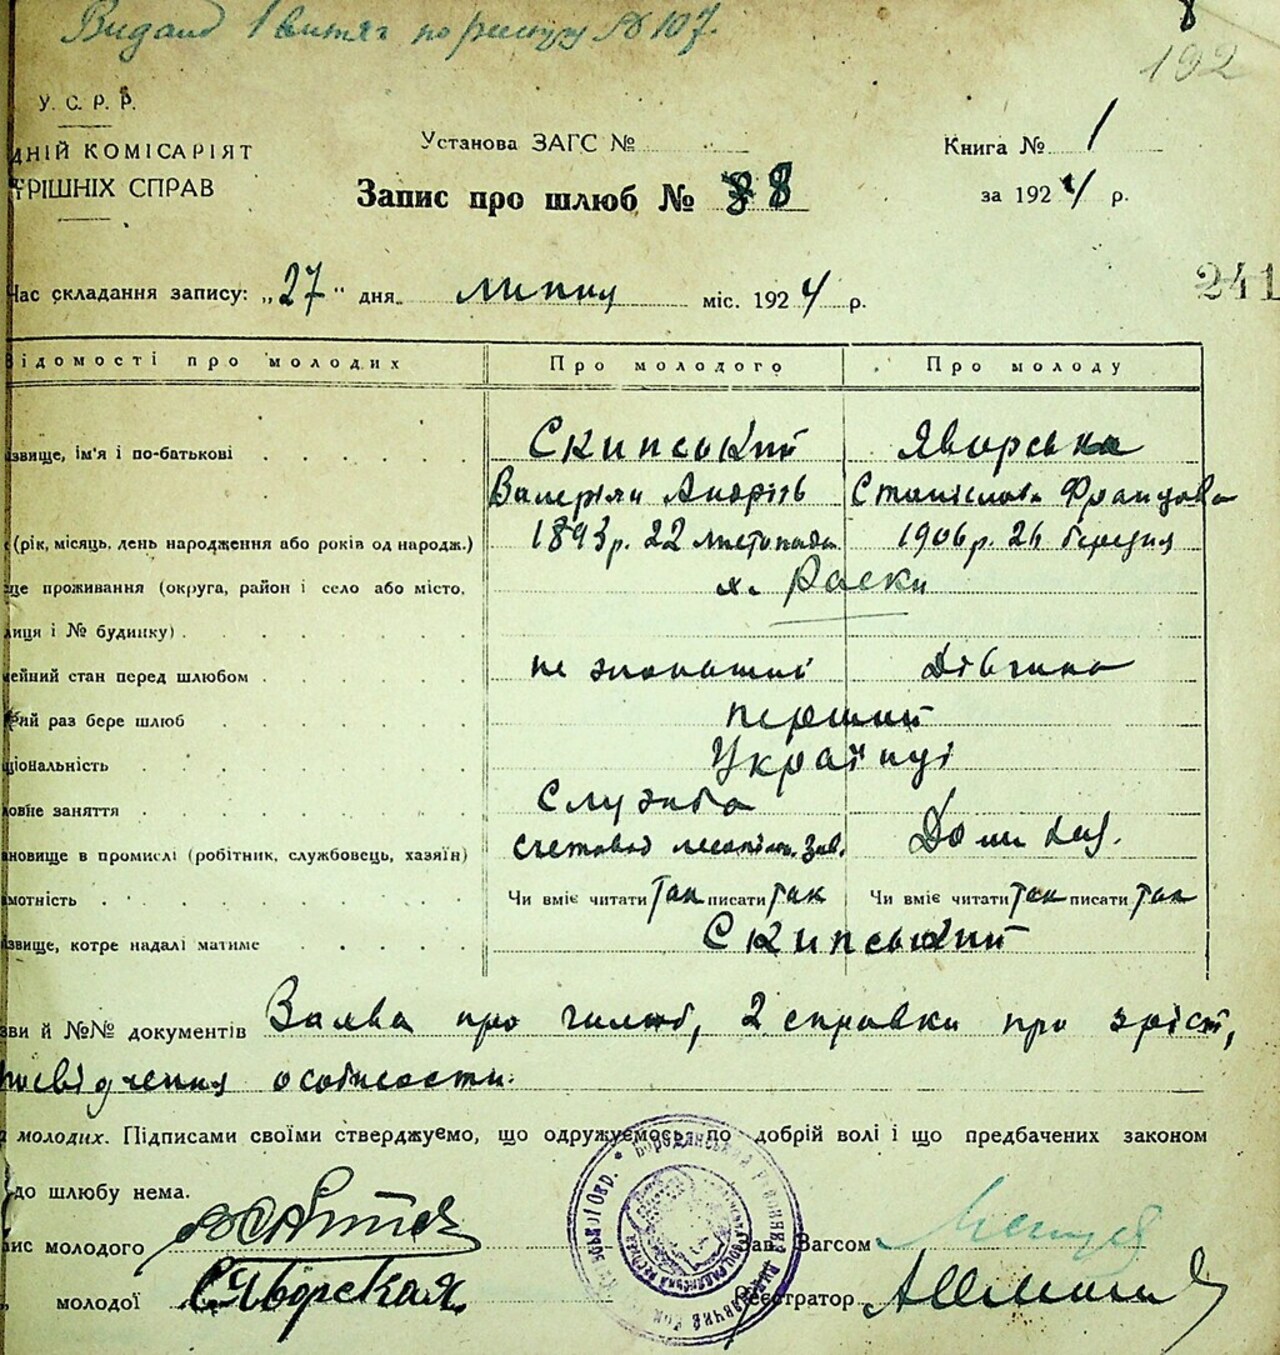 Видано 1 витяг по реєстру № 107.
8
192
У. С. Р. Р.
ДНІЙ КОМІСАРІЯТ
ТРІШНІХ СПРАВ
Установа ЗАГС №
Книга № 1
Запис про шлюб № 88
за 1924 р.
Час складання запису: „27" дня липня міс. 1924 р.
241
Відомості про молодих Про молодого Про молоду
звище, ім'я і по-батькові Скипський Яворська
Валеріян Андріїв Станіслава Францова
(рік, місяць, день народження або років од народж.) 1893 р. 22 листопада 1906 р. 26 березня
ще проживання (округа, район і село або місто, х. Раски
лиця і № будинку)
мейний стан перед шлюбом не жонатий Дівчина
рий раз бере шлюб перший
ціональність Українці
овне заняття Служба
ановище в промислі (робітник, службовець, хазяїн) счетовод лесопил. зав. Дом
мотність Чи вміє читати так писати так Чи вміє читати так писати так
звище, котре надалі матиме Скипський
зви й №№ документів Заява про шлюб, 2 справки про зріст,
посвідчення особистости.
молодих. Підписами своїми стверджуємо, що одружуємось по добрій волі і що предбачених законом
до шлюбу нема.
ис молодого
Зав. Загсом
„ молодої С. Яворская
Реєстратор